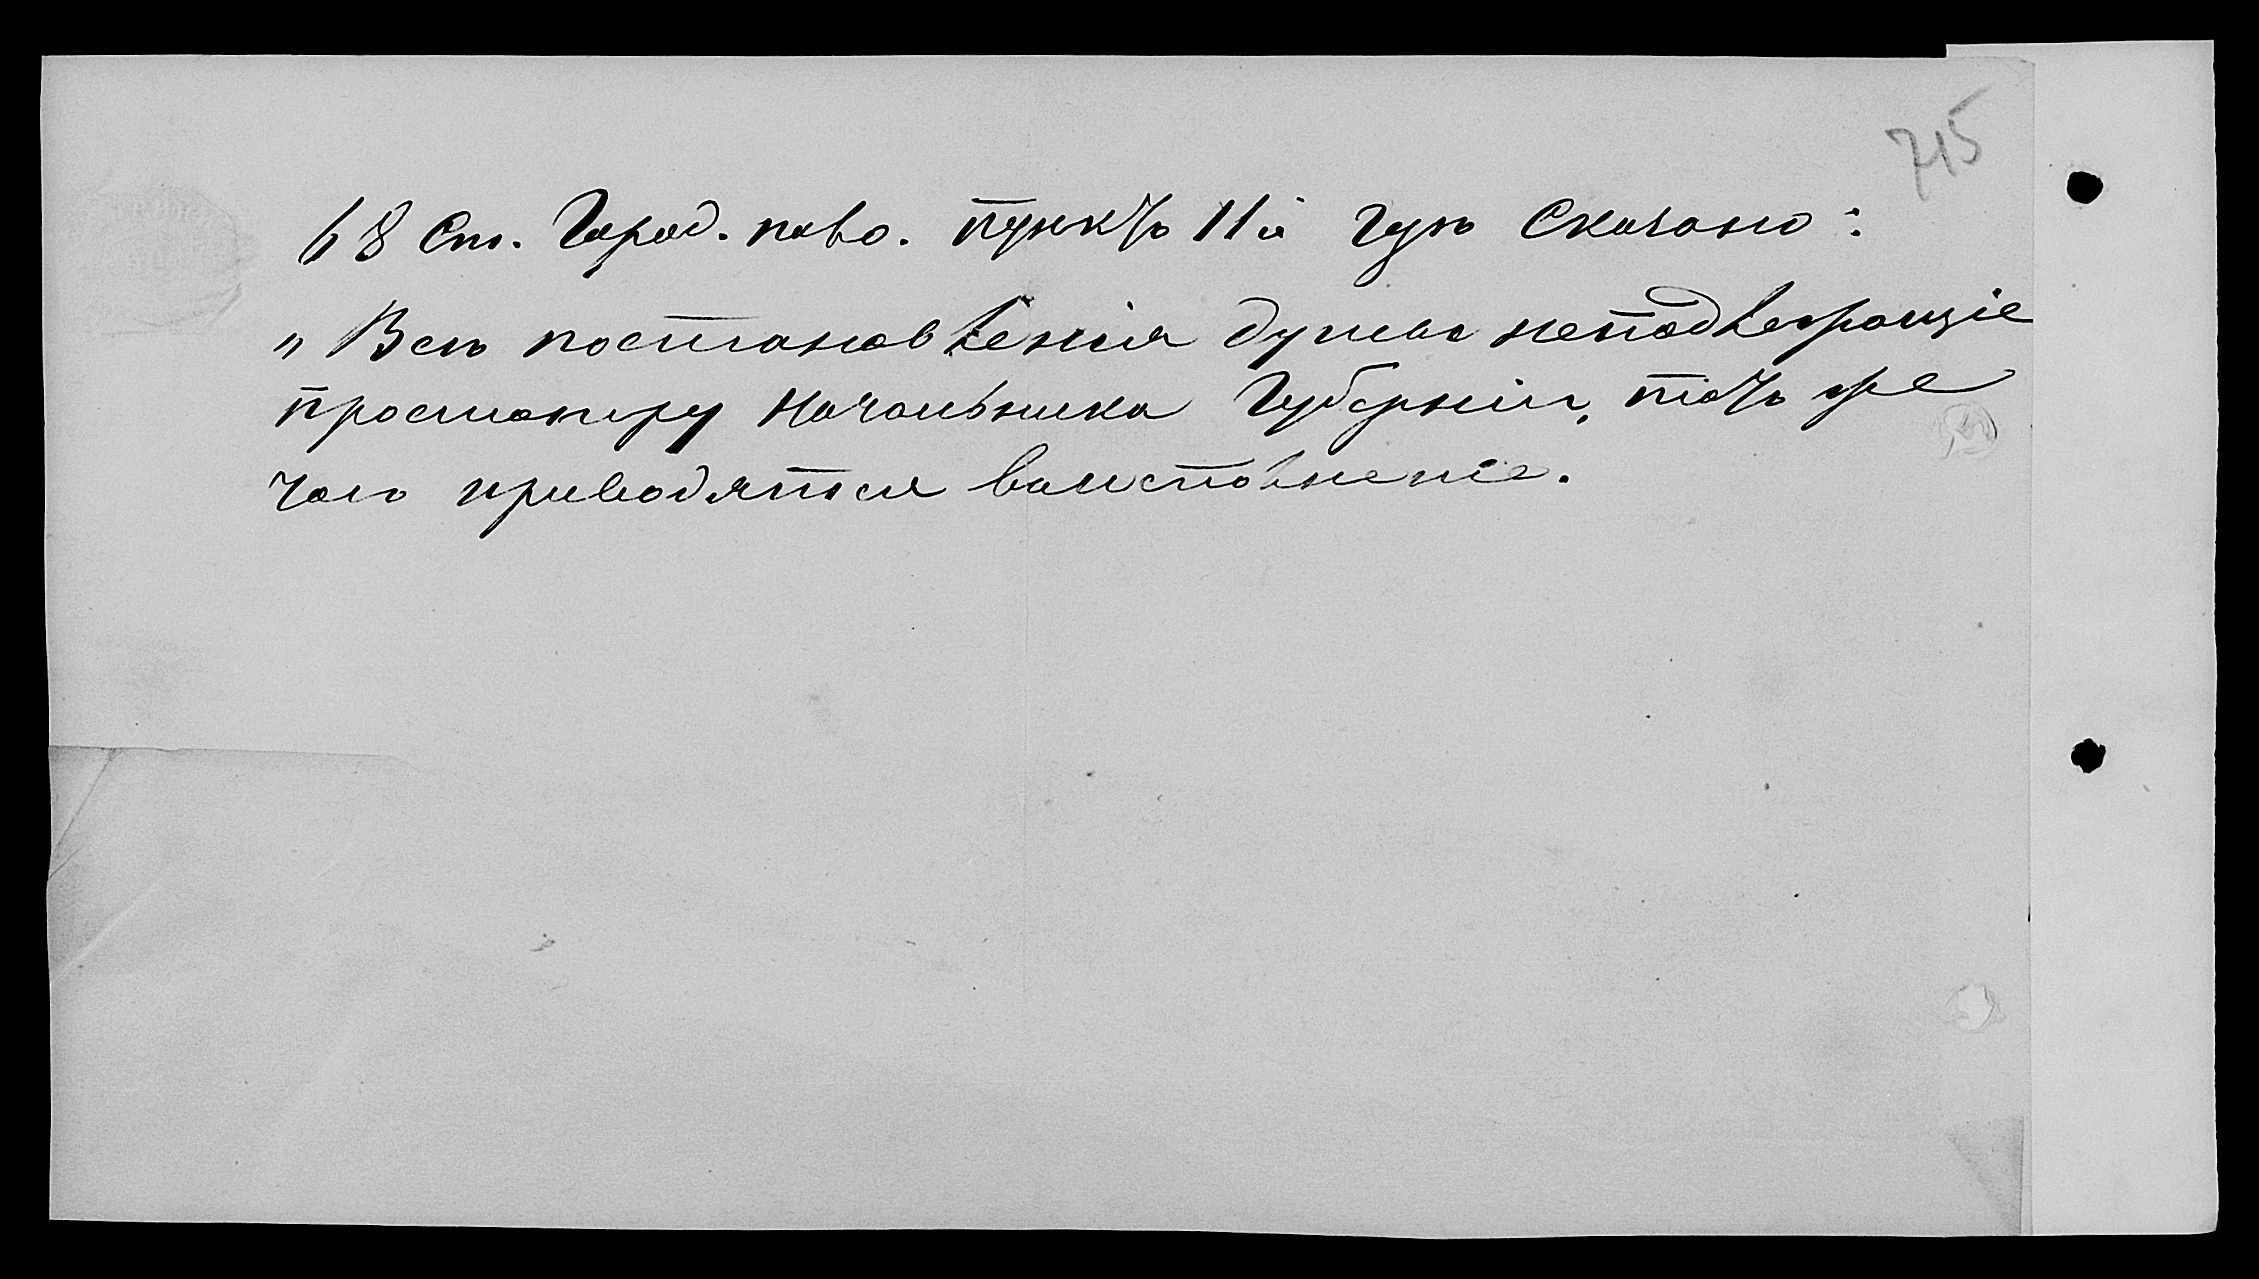 715
68 Ст. Город. поло. пунктъ 11й гдѣ Сказано:
„Всѣ постановленія думы неподлежащіе
просмотру Начальника Губерніи, тотъ же
часъ приводятся ваисполненіе.